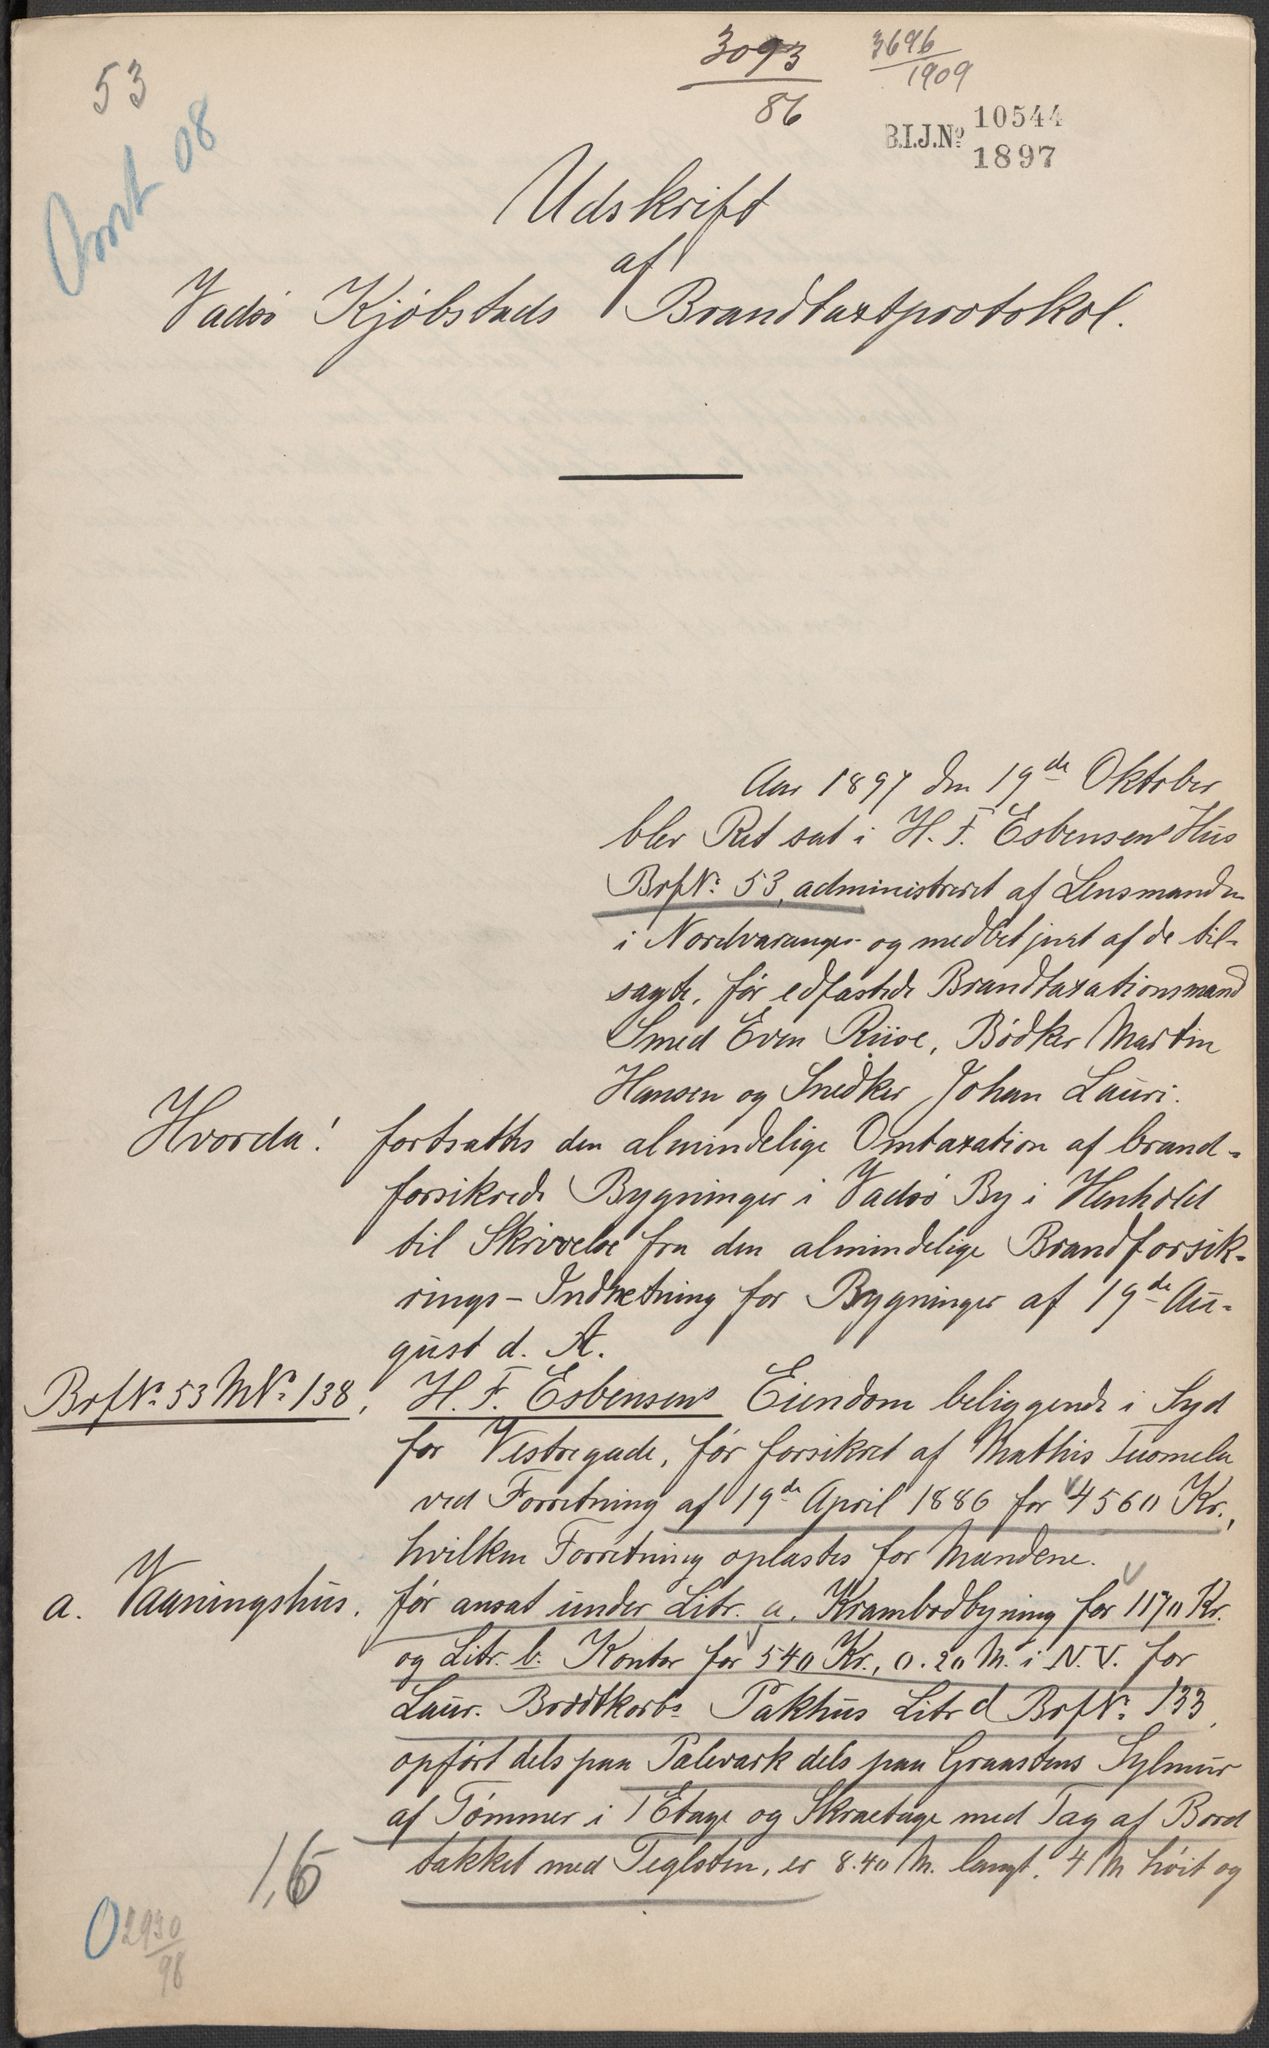 53
3093
86
3696
1909
B.I.J.Nº 10544
1897
08
Udskrift
af
Vadsö Kjöbstads Brandtaxtprotokol.
Aar 1897 den 19de Oktober
blev Ret sat i H. F. Esbensens Hus
BrfNº 53, administreret af Lensmanden
i Nordvaranger og medbetjent af de til-
sagte, før edfæstede Brandtaxationsmænd
Smed Even Riise, Bödker Martin
Hansen og Snedker Johan Lauri.
Hvorda! fortsattes den almindelige Omtaxation af brand-
forsikrede Bygninger i Vadsö By i Henhold
til Skrivelse fra den almindelige Brandforsik-
rings-Indretning for Bygninger af 19de Au-
gust d. A.
BrfNº 53 MNº 138, H. F. Esbensens Eiendom beliggende i Syd
for Vestregade, før forsikret af Mathis Tuomela
ved Forretning af 19de April 1886 for 4560 Kr.,
hvilken Forretning oplæstes for Mændene.
a. Vaaningshus. før ansat under Litr. a. Krambodbygning for 1170 Kr.
og Litr. b. Kontor for 540 Kr., 0.20 M. i N.V. for
Laur. Brodtkorbs Pakhus Litr d BrfNº 133,
opført dels paa Pæleværk dels paa Graastens Sylmur
af Tømmer i 1 Etage og Skraaetage med Tag af Bord
tækket med Teglsten, er 8.40 M. langt, 4 M høit og
1,6
2930
98